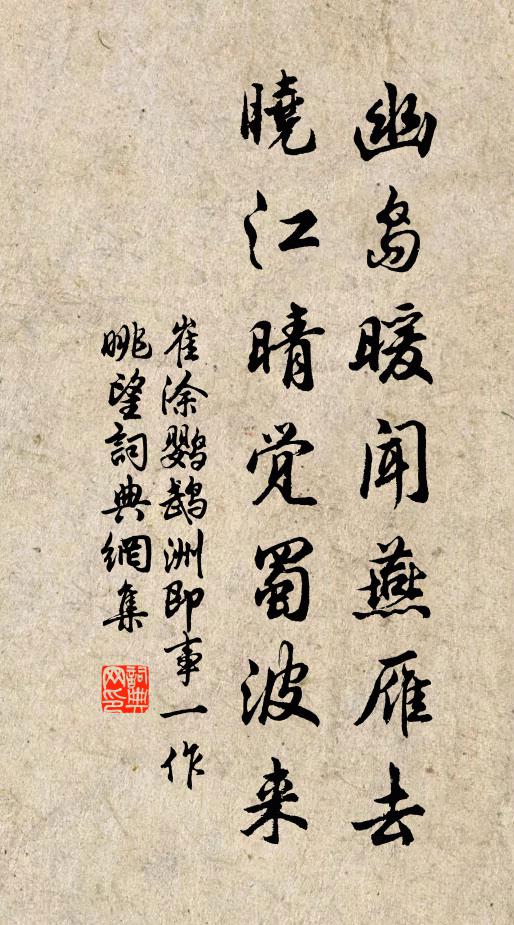 幽岛暖闻燕雁去
晓江晴觉蜀波来
崔涂鹦鹉洲即事一作
眺望詞典網集
詞典网印